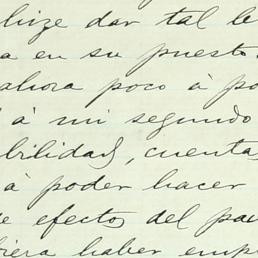 hize dar tal le
a en su puesto.
ahora poco à po
à mi segundo
bilidad, cuenta
à poder hacer
e efectos del pa
biera haber emp